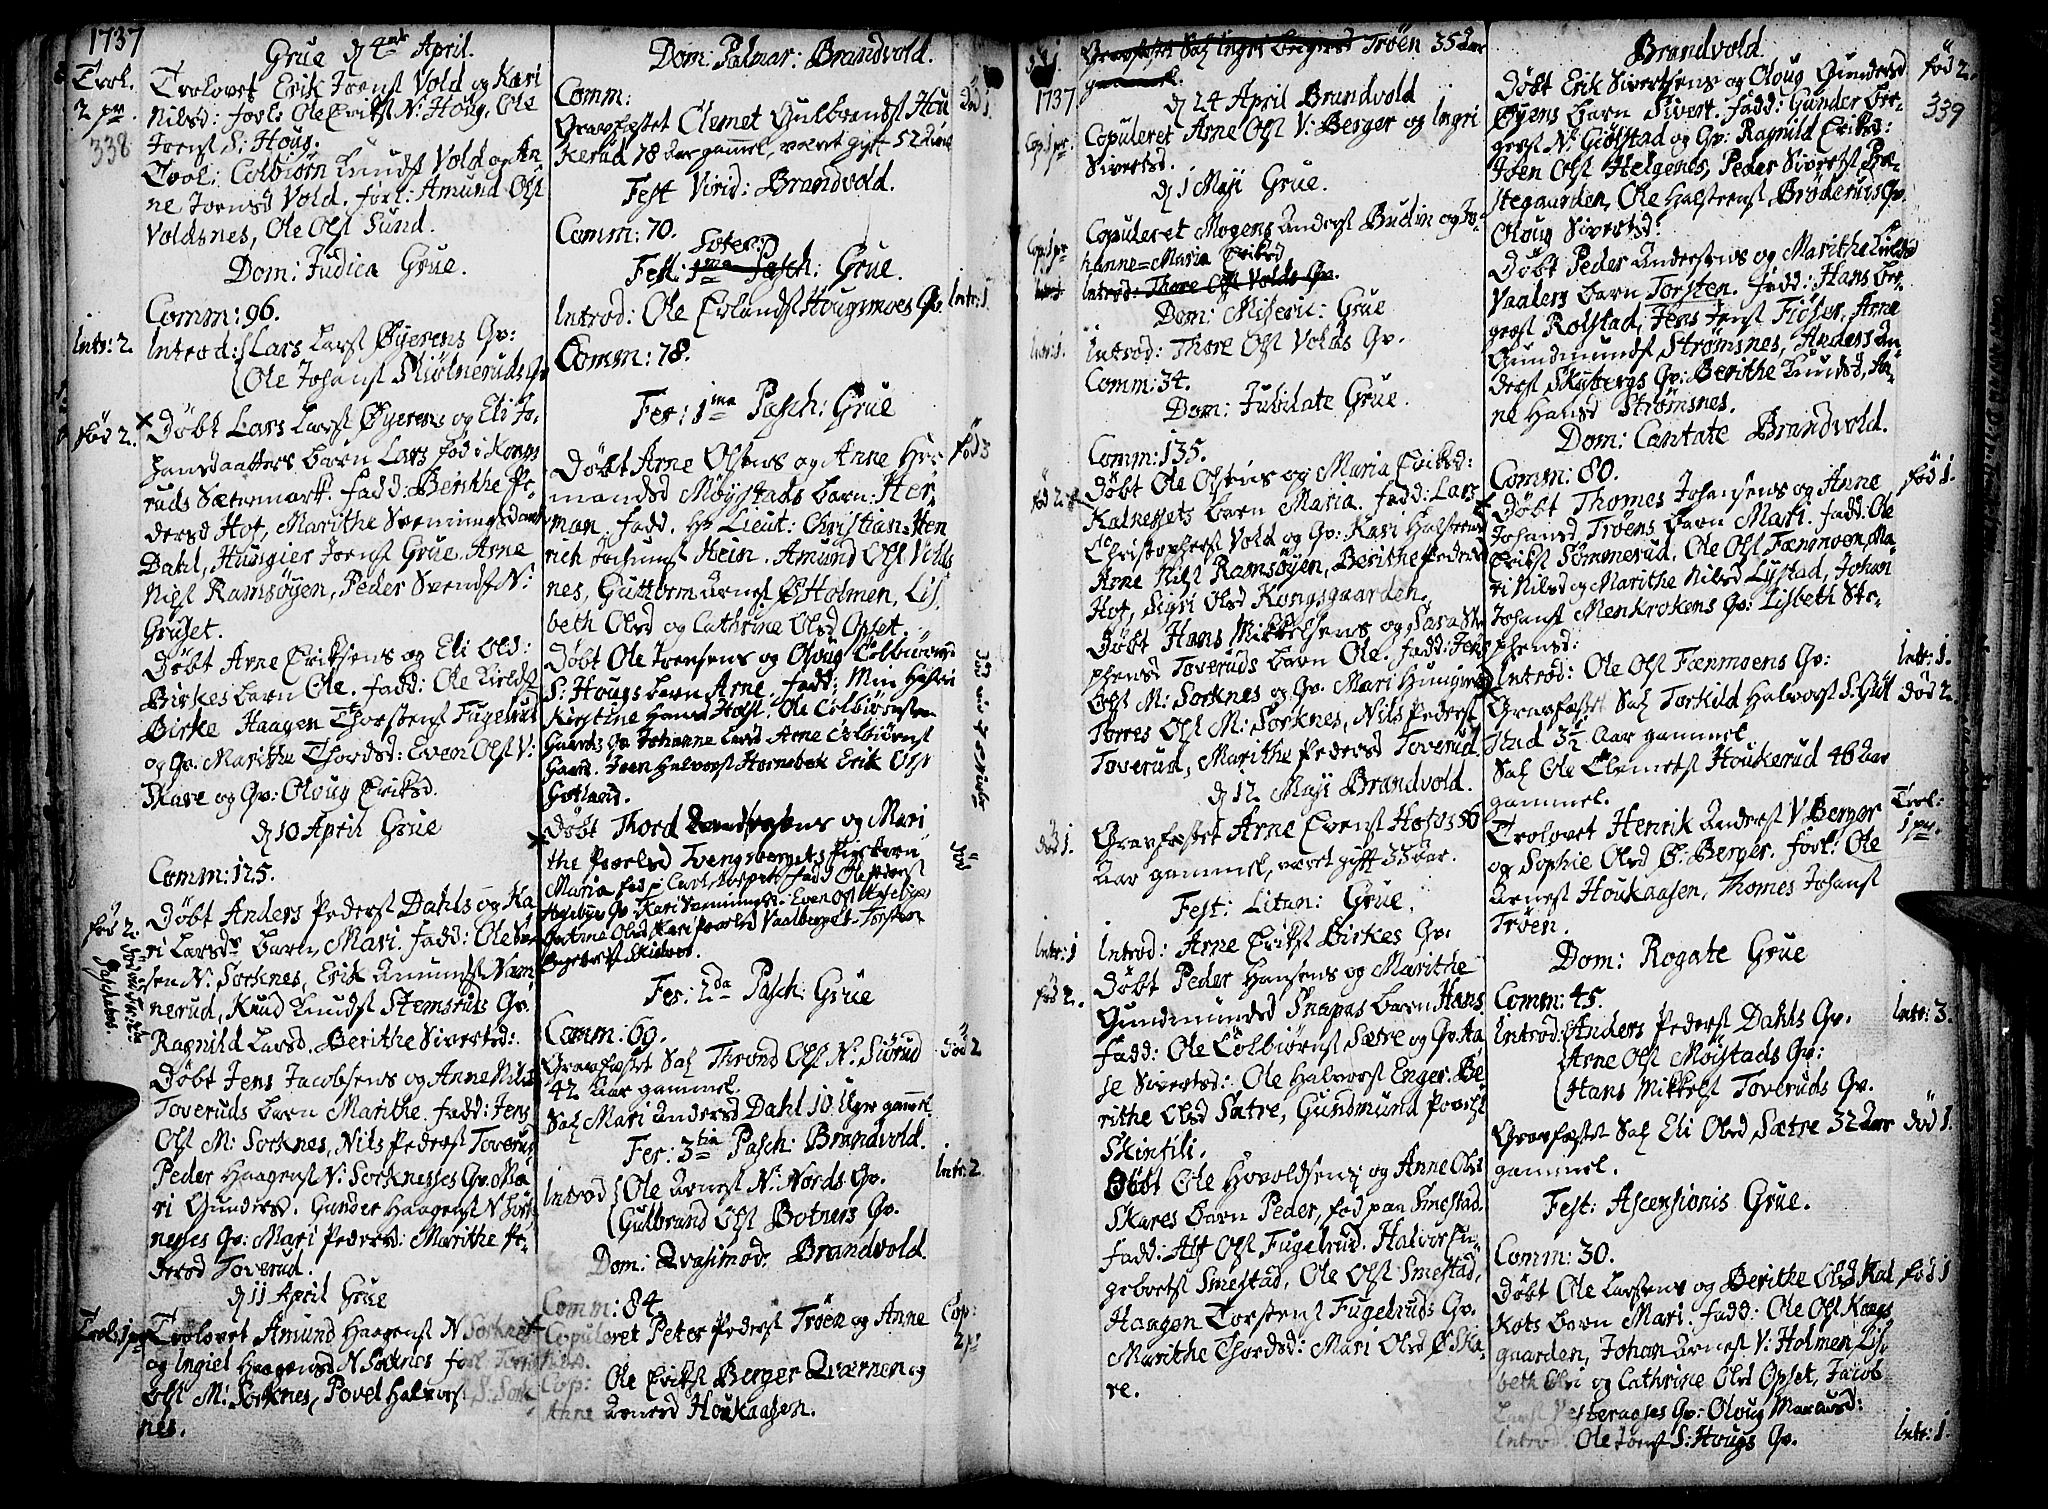 1737
Grue d 4de April.
Trol.
2 pr.
338
Trolovet Erik Joens: Vold og Kari
Nilsd: forl: Ole Eriks: N: Houg, Ole
Joens: S: Houg.
Trol: Colbiørn Knuds: Vold og An-
ne Joensd Vold. forl: Amund Ols:
Voldsnes, Ole Ols: Sund.
Dom: Judica Grue.
Comm: 96.
Intr: 2.
Introd: Lars Lars: Øyerens Qv:
Ole Johans: Skiølneruds Qv
fød 2.
Døbt Lars Lars: Øyerens og Eli Jo-
hansdaatters barn Lars fød i Kongs
ruds Sætremark. fadd: Berithe Pe-
dersd Hof, Marithe Svenningsdaatt
Dahl, Hungier Joens: Grue Arne
Niels: Ramsøyen, Peder Svends: N:
Gruset.
Døbt Arne Eriksens og Eli Ols:
Birkes barn Ole. fadd: Ole Kields:
Birke Haagen Thorstens: Fugelrud
og Qv. Marithe Thordsd: Even Ols: V:
Skare og Qv: Oloug Eriksd.
d 10 April Grue
Comm: 125.
fød 2.
Døbt Anders Peders: Dahls og Ka
ri Larsd: barn, Mari. fadd: Ole
sen N: Sorknes, Erik Amunds: Nam
nerud, Knud Knuds: Stemsruds Qv.
Ragnild Larsd. Berithe Sivertsd:
Døbt Jens Jacobsens og Anne Nilsd
Toveruds barn Marithe. fadd: Jens
Ols: M: Sorknes, Nils Peders: Toverud
Peder Haagens: N: Sorknesses Qv. Ma
ri Gundersd. Gunder Haagens: N Sork
nesses Qv: Mari Pedersd: Marithe Pe-
dersd Toverud.
d 11 April Grue
Trol: 1 pr
Trolovet Amund Haagens: N Sorknes
og Ingiel Haagensd N Sorknes forl
Ols: M: Sorknes, Povel Halvors: S: Sork
nes.
Dom: Palmar: Brandvold.
Comm:
død 1.
Gravfæstet Clemet Gulbrands: Hou
kerud 78 aar gamel, været gift 52 aar
Fest Virid: Brandvold.
Comm: 70.
Soter:
Fest: 1ma Pasch: Grue.
Introd: Ole Erlands: Hougsmoes Qv. Intr: 1
Comm: 78.
Fer: 1ma Pasch: Grue
fød 3
Døbt Arne Olsens og Anne Her-
mandsd Møystads barn: Her-
man. fadd. Hr Lieut: Christian Hen
rich Hein. Amund Ols: Volds
nes, Guttorm Arnes: Ø Holmen, Lis
beth Olsd og Cathrine Olsd Opset
Døbt Ole Joensens og Oloug Colbiørnsd
S: Hougs barn Arne. fadd:
Kirstine Hansd Ole Colbiørnsen
Gaards Qv Johanne Larsd Arne Colbiørns:
Gaard. Joen Halvors: Hornebek Erik Ols:
Gotland.
Døbt Thord og Mari
the Povelsd Tvengsbergets
Maria
Qv Kari Even Ols:
Vaalberget Torsten
Fer: 2da Pasch: Grue
Comm: 69.
Gravfæstet Sal: Thrond Ols: N: Siørud død 2
42 Aar gammel.
Sal: Mari Andersd Dahl 10 Uger gamel.
Fer: 3tia Pasch: Brandvold.
Introd Ole Arnes: N: Nords Qv. Intr: 2
Gulbrand Ols: Botners Qv.
Dom: Qvasimod: Brandvold.
Comm: 84.
Copuleret Peter Peders: Trøen og Anne Cop:
2 pr
Cop: Ole Eriks: Berger Qværnen og
Anne Arnesd Houkaasen.
Gravfæstet Sal: Ingri Trøen 35 Aar
gammel.
1737
d 24 April Brandvold
Cop: 1 pr.
Copuleret Arne Ols: V: Berger og Ingri
Sivertsd.
d 1 Maji Grue.
Cop: 1 pr
Copuleret Mogens Anders: Budin og Jo-
hanne-Maria Eriksd
Introd: Thore Ols: Volds Qv.
Dom: Miseric: Grue
Intr: 1.
Introd: Thore Ols: Volds Qv.
Comm: 34.
Dom: Jubilate Grue.
Comm: 135.
fød 2
Døbt Ole Olsens og Maria Eriksd:
Kalnessets barn Maria. fadd: Lars
Christophers: Vold og Qv: Kari Halstens
Arne Nils: Ramsøyen, Berithe Pedersd
Hof, Sigri Olsd Kongsgaarden.
Døbt Hans Mikkelsens og Sara Ste
phensd Toveruds barn Ole. fadd: Jens
Ols: M: Sorknes og Qv. Mari
Torres Ols: M: Sorknes, Nils Peders:
Toverud, Marithe Pedersd Toverud.
d 12 Maji Brandvold.
død 1.
Gravfæstet Arne Evens: Hofos 56
Aar gammel, været gift 33 aar.
Fest: Litan: Grue.
Intr: 1
Introd: Arne Eriks: Birkes Qv:
fød 2.
Døbt Peder Hansens og Marithe
Gundmundsd Snapas barn Hans.
fadd: Ole Colbiørns: Sætre og Qv. Aa
se Sivertsd: Ole Halvors: Enger, Be
rithe Olsd Sætre, Gundmund Povels:
Skintili.
Døbt Ole Hovoldsens og Anne Olsd
Skares barn Peder, fød paa Smestad.
fadd: Alf Ols: Fugelrud. Halvor In-
gebrets: Smestad, Ole Ols: Smestad,
Haagen Torstens: Fugelruds Qv.
Marithe Thordsd: Mari Olsd Ø Ska-
re.
Brandvold.
fød 2.
339
Døbt Erik Sivertsens og Oloug Gundersd
Øyens barn Sivert. fadd: Gunder Ber-
gers: N: Giølstad og Qv: Ragnild Eriksd:
Joen Ols: Helgenes, Peder Siverts: Præ-
stegaarden, Ole Halstens: Brøderuds Qv.
Oloug Sivertsd:
Døbt Peder Andersens og Marithe
Vaalers barn Torsten. fadd: Hans Ber-
gers: Rolstad, Jens Jens: Fiøser, Arne
Gundmunds: Strømsnes, Anders An
ders: Skybergs Qv: Berithe Knudsd, An
ne Hansd Strømsnes.
Dom: Cantate Brandvold.
Comm: 80. fød 1.
Døbt Thomes Johansens og Anne
Johansd Trøens barn Mari. fadd: Ole
Eriks: Sømmerud. Ole Ols: Fænmoen, Ma
ri Nilsd og Marithe Nilsd Lystad, Johan
Johans: Menkrokens Qv: Lisbeth Ste-
phensd:
Introd: Ole Ols: Fænmoens Qv: Intr: 1.
Gravfæstet Sal: Torkild Halvors: S: død 2
3 1/2 Aar gammel.
Sal: Ole Clemets: Houkerud 46 Aar
gammel.
Trol:
1 pr.
Trolovet Henrik Anders: V Berger
og Sophie Olsd Ø. Berger. forl: Ole
Arnes: Houkaasen, Thomes Johans:
Trøen.
Dom: Rogate Grue
Comm: 45.
Intr: 3.
Introd: Anders Peders: Dahls Qv.
Arne Ols: Møistads Qv:
Hans Mikkels: Toveruds Qv.
Gravfæstet Sal: Eli Olsd Sætre 32 Aar død 1.
gammel.
Fest: Ascensionis Grue.
Comm: 30.
Døbt Ole Larsens og Berithe Olsd Kal fød 1
kots barn Mari. fadd: Ole Ols: Kongs
gaarden, Johan Arnes: V: Holmen Lis
beth Olsd og Cathrine Olsd Opset, Jacob
Lars: Vesteraases Qv: Oloug
Introd: Ole Joens: S: Hougs Qv. Intr: 1.